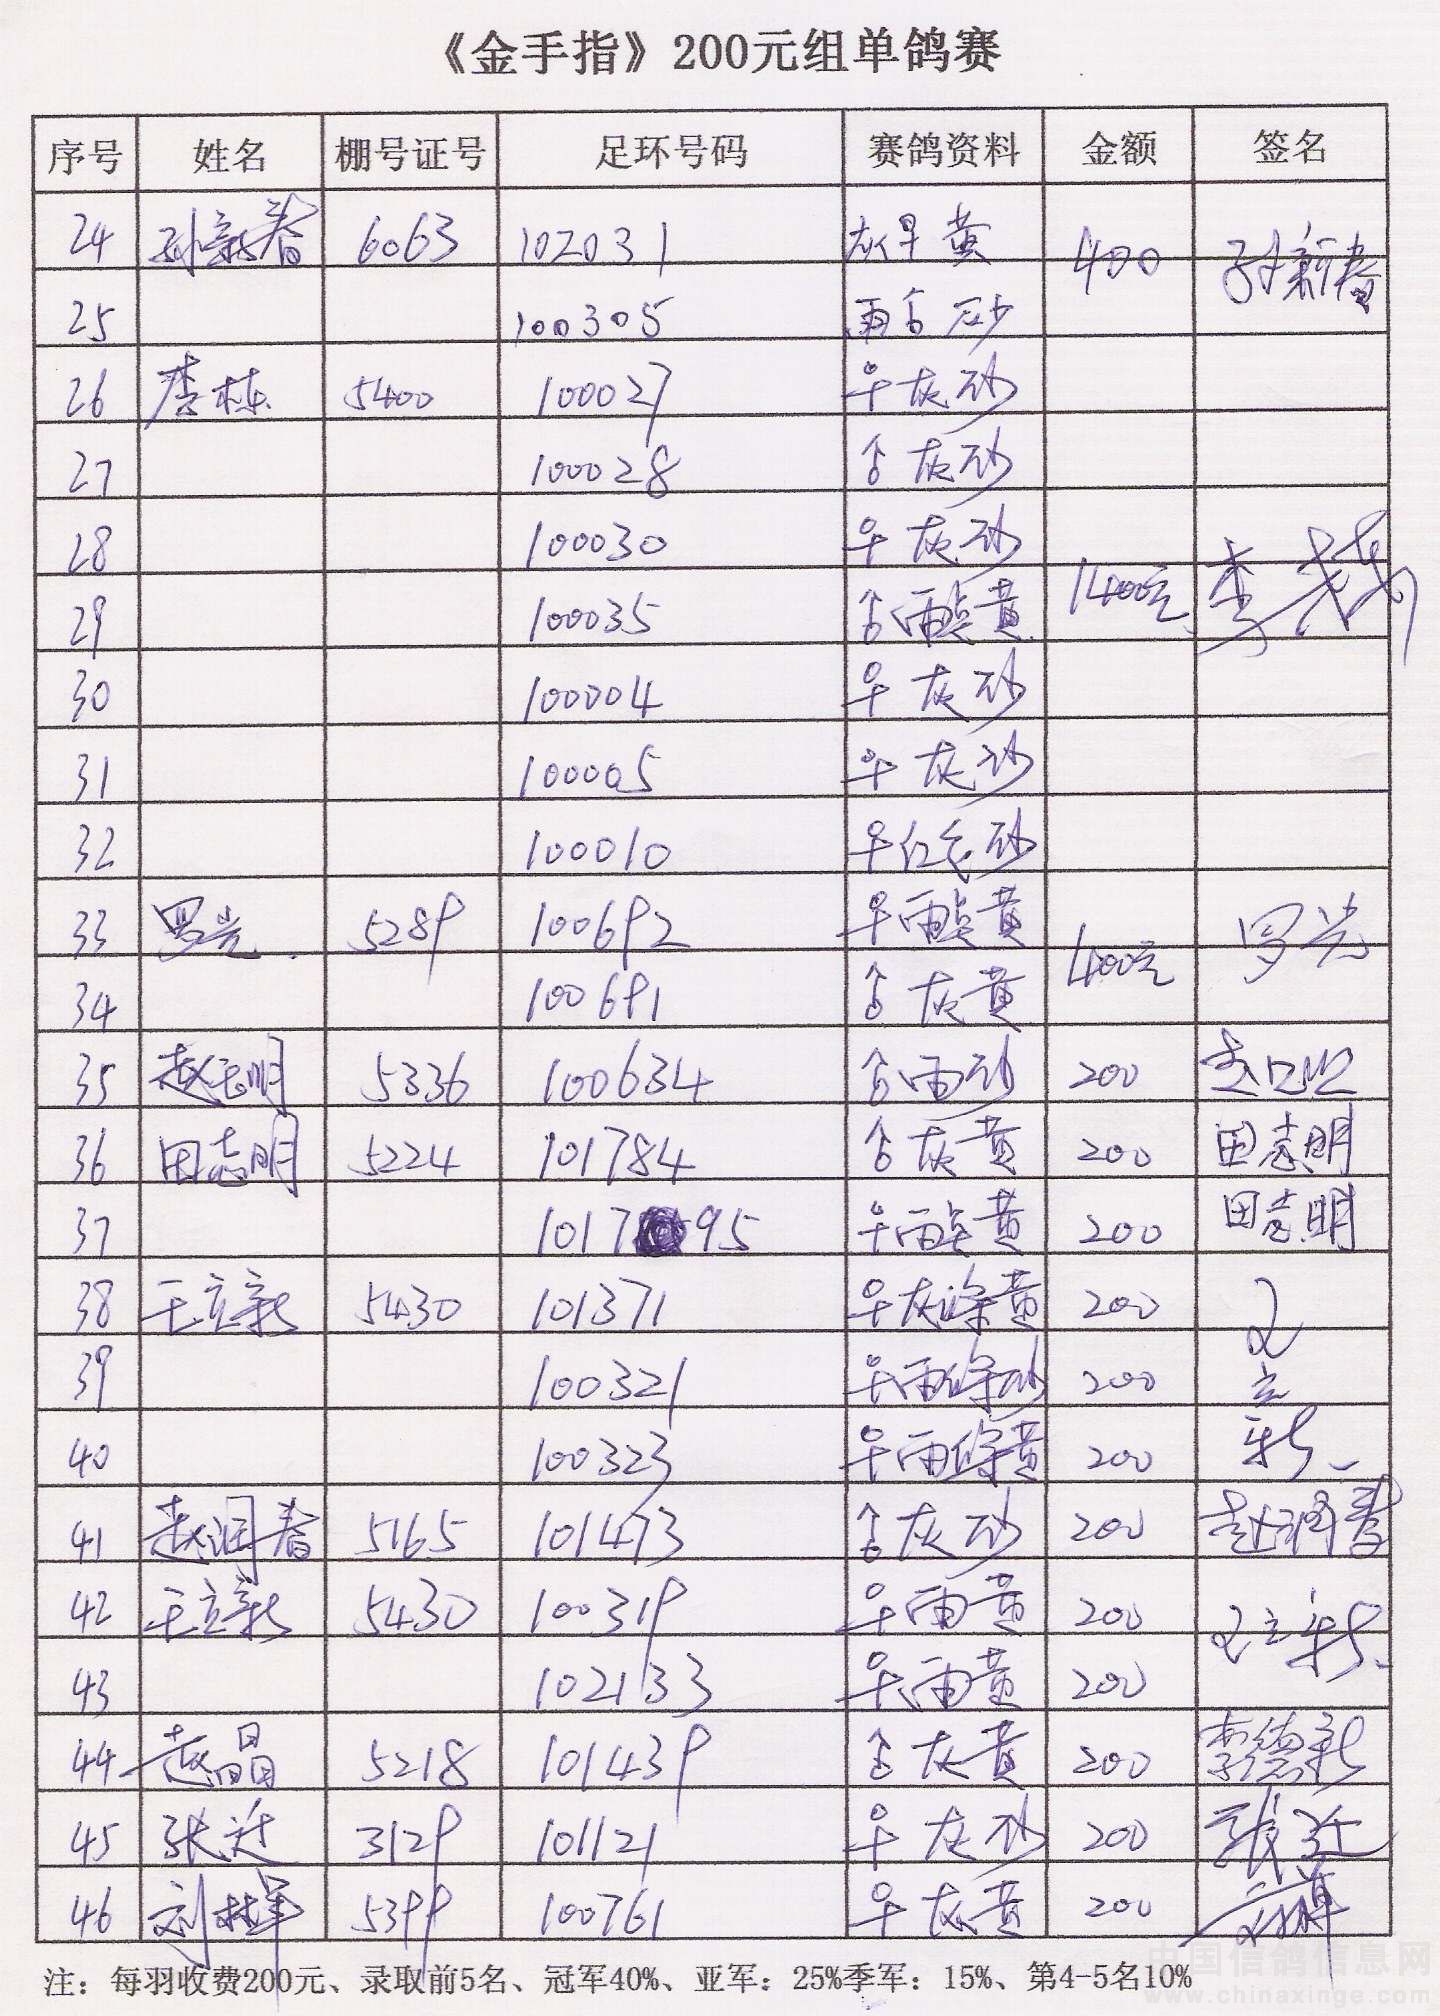 《金手指》200元组单鸽赛
序号 姓名 棚号证号 足环号码 赛鸽资料 金额 签名
24 孙新春 6063 102031 灰 黄 400 孙新春
25 100305 雨 砂
26 李栋 5400 100027 ♀灰砂
27 100028 ♂灰砂
28 100030 ♀灰砂
29 100035 ♂雨点黄 1400元 李
30 100004 ♀灰砂
31 100005 ♀灰砂
32 100010 ♀红 砂
33 罗光 5289 100692 ♀雨点黄 罗光
34 100691 ♂灰黄 400元
35 赵 明 5336 100634 ♂雨砂 200
36 田志明 5224 101784 ♂灰黄 200 田志明
37 1017 95 ♀雨点黄 200 田志明
38 王立新 5430 101371 ♀灰条黄 200 王
39 100321 ♀雨条砂 200 立
40 100323 ♀雨条黄 200 新
41 赵润春 5165 101473 ♂灰砂 200 赵润春
42 王立新 5430 100319 ♀雨黄 200 王立新
43 102133 ♀雨黄 200
44 赵晶 5218 101439 ♂灰黄 200 李德新
45 张迁 3129 101121 ♀灰砂 200 张迁
46 刘 5399 100761 ♀灰黄 200
注：每羽收费200元、录取前5名、冠军40%、亚军：25%季军：15%、第4-5名10%
中国信鸽信息网
www.chinaxinge.com